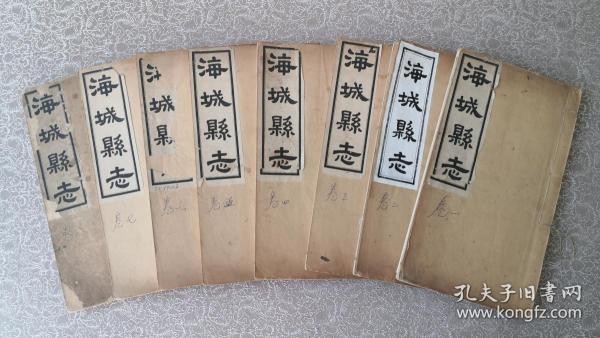 海城縣志
卷一
海城縣志
卷二
海城縣志
卷三
海城縣志
卷四
海城縣志
卷五
城縣
海城縣志
卷七
海城縣志
孔夫子旧書网
www.kongfz.com